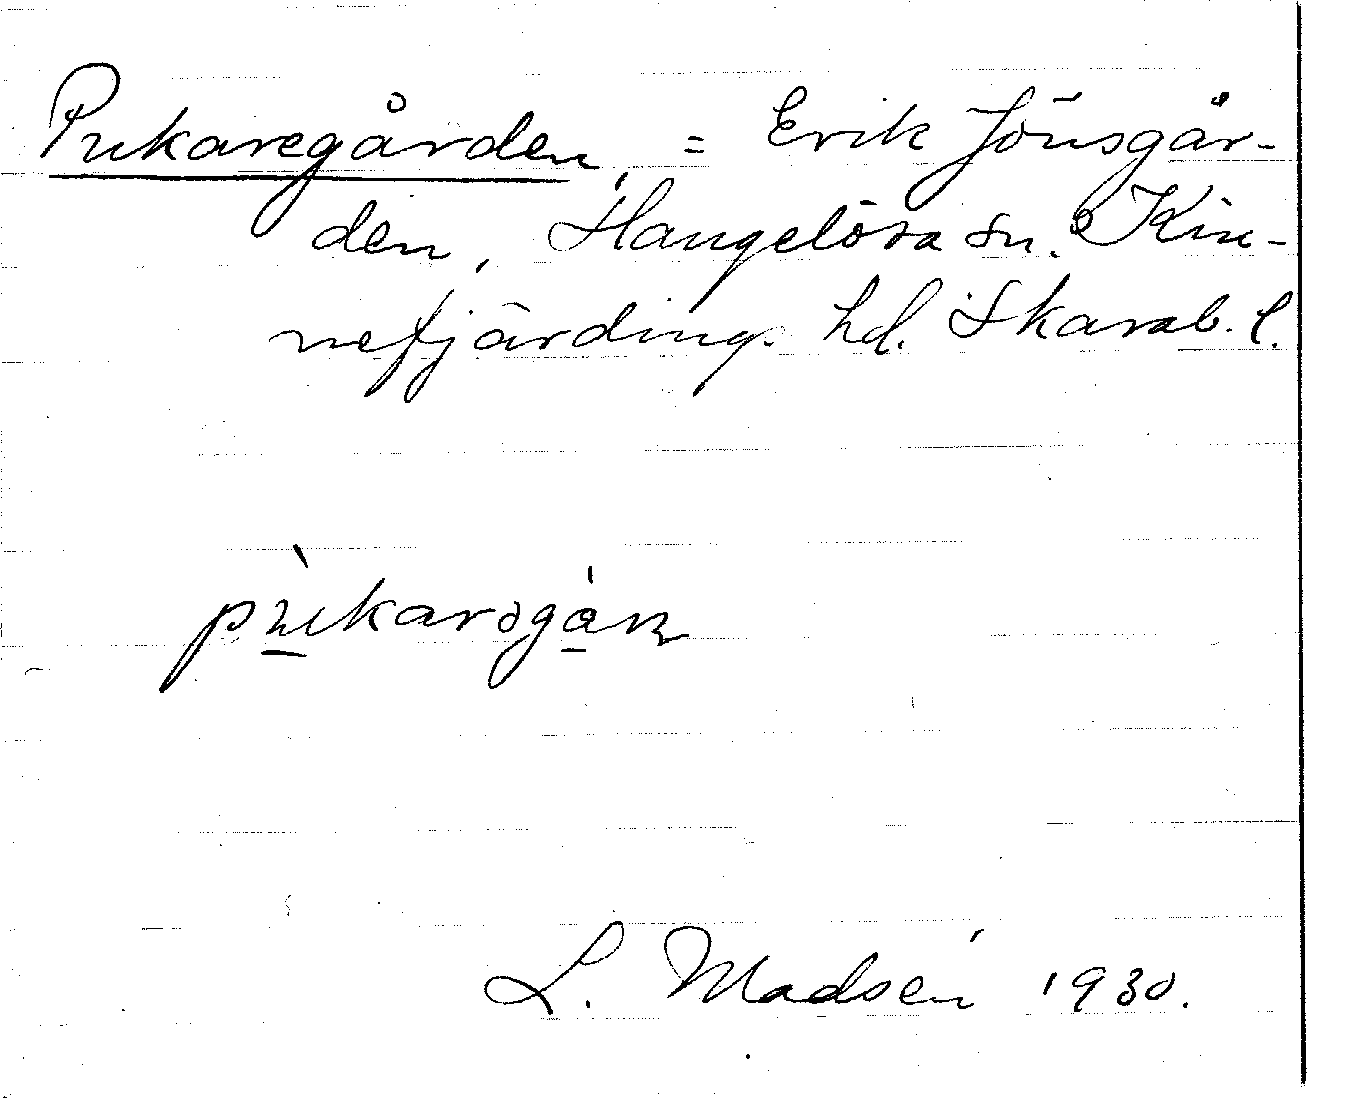 Pukaregården, = Erik Jönsgår-
den, Hangelösa sn. Kin-
nefjärdings hd. Skarab. l.
pùkarəgán
L. Madsén 1930.